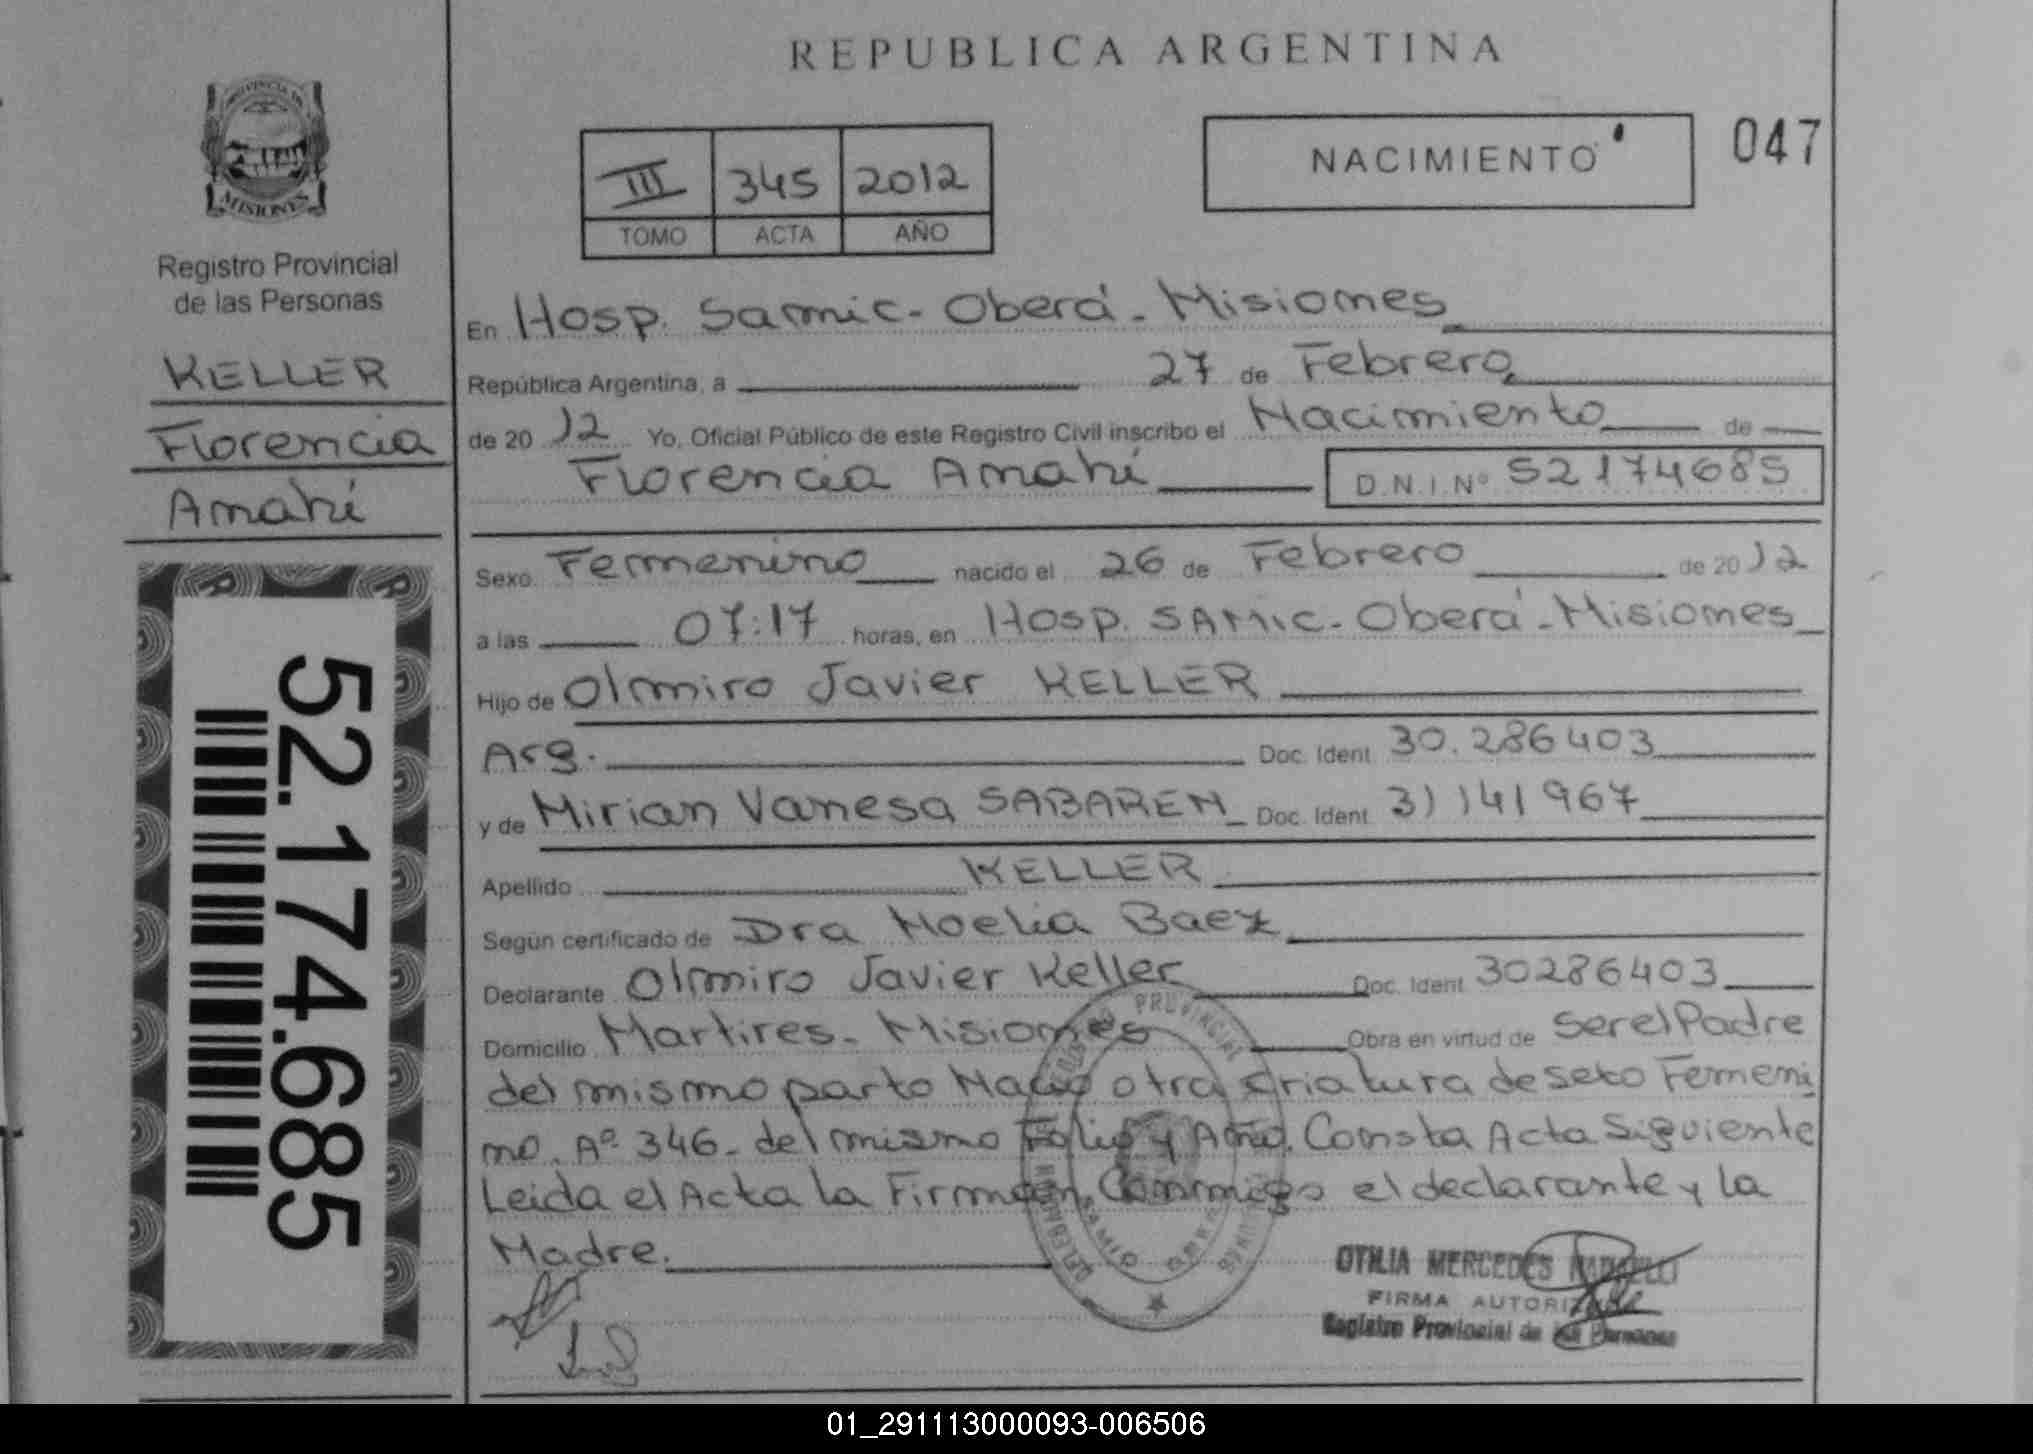 REPUBLICA ARGENTINA
PROVINCIA DE
MISIONES
Registro Provincial
de las Personas
KELLER
Florencia
Anahí
52.174.685
III 345 2012
TOMO ACTA AÑO
NACIMIENTO
047
En Hosp. Samic - Oberá - Misiones
República Argentina, a 27 de Febrero
de 2012 Yo, Oficial Público de este Registro Civil inscribo el Nacimiento de
Florencia Anahí D.N.I. Nº 52174685
Sexo Femenino nacido el 26 de Febrero de 2012
a las 07:17 horas, en Hosp. SAMIC - Oberá - Misiones
Hijo de Olmiro Javier KELLER
Arg. Doc. Ident. 30.286403
y de Mirian Vanesa SABAREN Doc. Ident. 31141967
Apellido KELLER
Según certificado de Dra Noelia Baez
Declarante Olmiro Javier Keller Doc. Ident. 30286403
Domicilio Martires - Misiones Obra en virtud de Ser el Padre
del mismo parto Nacio otra criatura de sexo Femeni
no. Aº 346 - del mismo Folio y Año. Consta Acta Siguiente
Leida el Acta la Firman Conmigo el declarante y la
Madre.
PROVINCIAL
SAMIC
OTILIA MERCEDES
FIRMA AUTORIZADA
Registro Provincial de las Personas
01_291113000093-006506